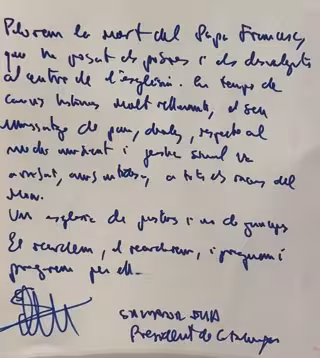 Plorem la mort del Papa Francesc,
que ha posat els pobres i els desvalguts
al centre de l'església. En temps de
canvis històrics molt rellevants, el seu
missatge de pau, diàleg, respecte al
medi ambient i justícia social ha
arribat, a tots els racons del
món.
Una església de pastors i no de
El recordem, el recordarem, i preguem i
pregarem per ell.
SALVADOR ILLA
President de Catalunya